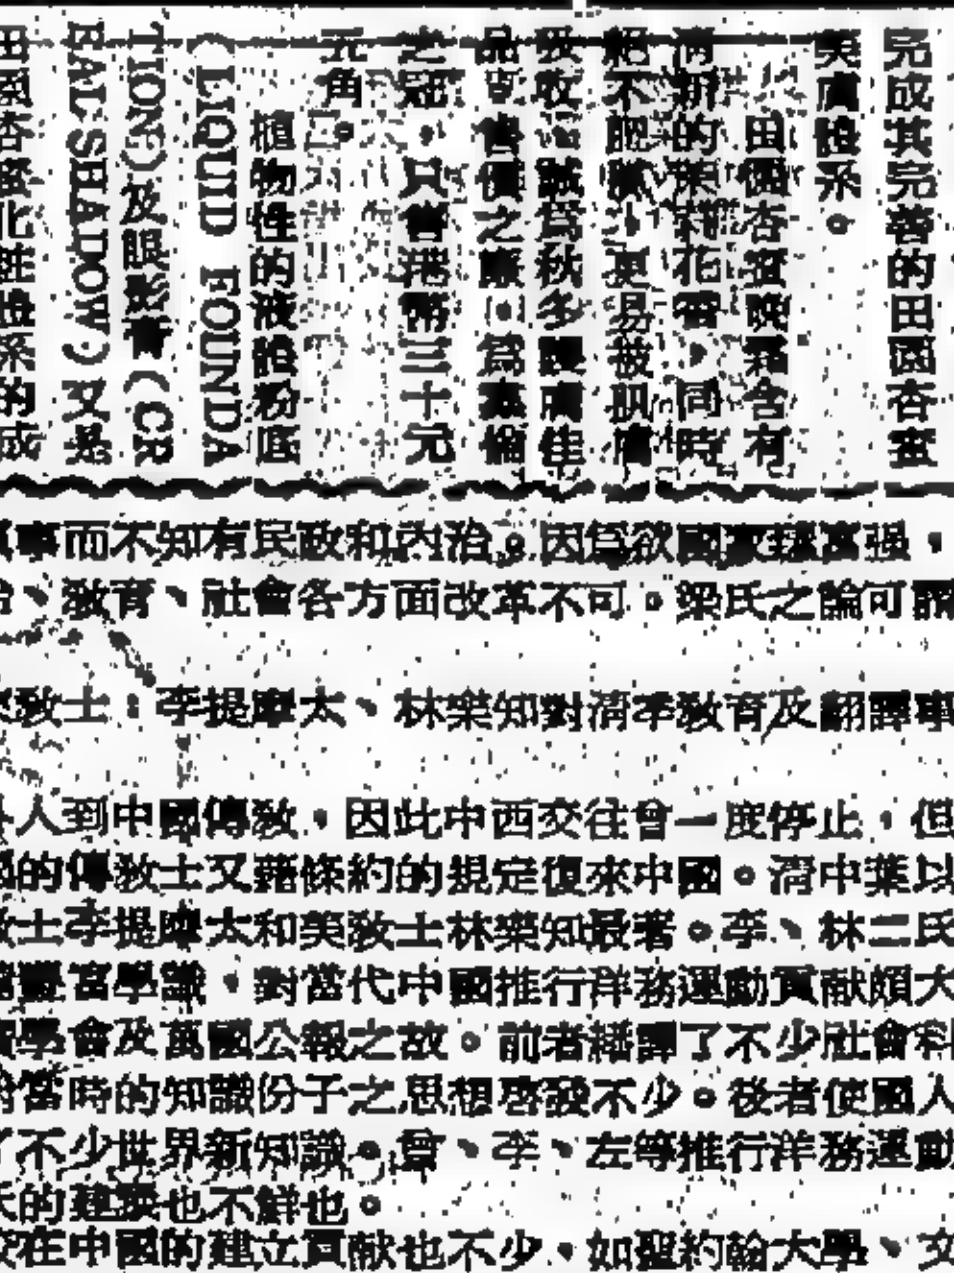 完成其完善的田園杏蜜
美膚護系。
田園杏蜜晚霜含有
清新的茉莉花香，同時
絕不肥膩，更易被肌膚
吸收，誠為秋冬護膚佳
品
之冠，只售港幣三十元
元角。
植物性的液體粉底
(LIQUID FOUNDA
TION)及眼影膏(CR
EAL SELADOW)又是
田園杏蜜化粧護系的成
事而不知有民政和內治。因為欲國家臻富强，
、教育、社會各方面改革不可。梁氏之論可謂
教士：李提摩太、林樂知對清季教育及翻譯事
人到中國傳教，因此中西交往曾一度停止，但
的傳教士又藉條約的規定復來中國。清中葉以
士李提摩太和美教士林樂知最著。李、林二氏
豐富學識，對當代中國推行洋務運動貢献頗大
學會及萬國公報之故。前者繙譯了不少社會科
當時的知識份子之思想啓發不少。後者使國人
了不少世界新知識。曾、李、左等推行洋務運動
的建議也不鮮也。
在中國的建立貢献也不少，如聖約翰大學、文